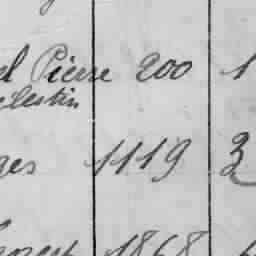 el Pierre 200 1
elestin
ges 1119 3
1868